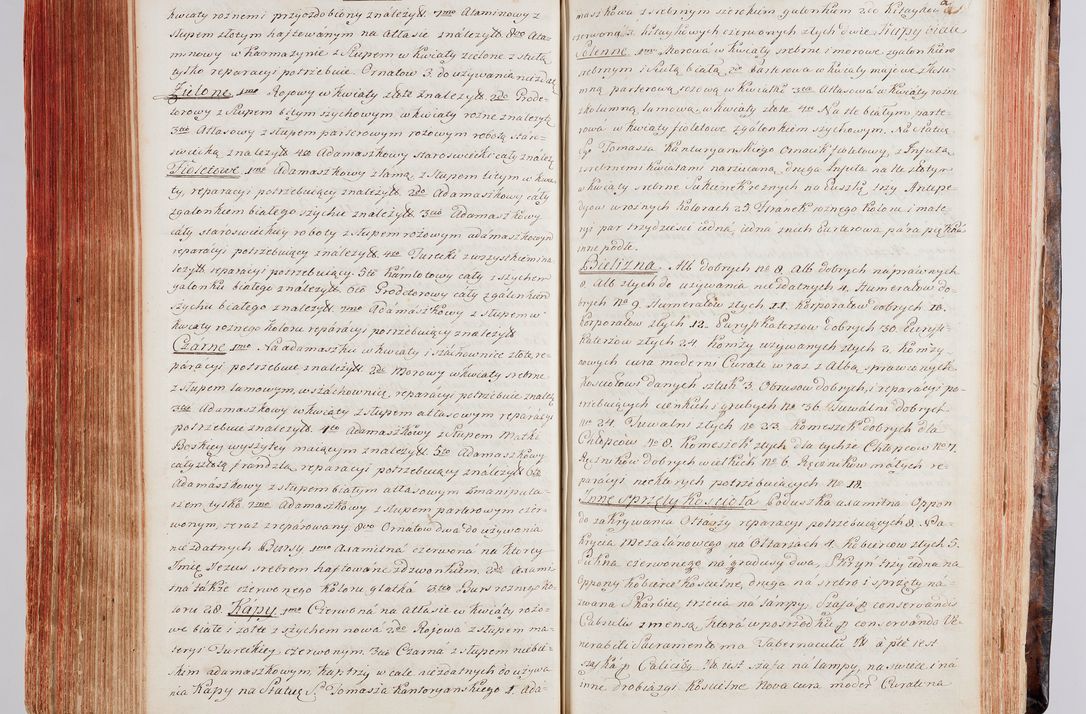 kwiaty roznemi przyozdobiony znalezył. 7mo Axaminowy z
słupem złotym haftowanym na Atłasie znalezył. 8vo Axa-
minowy w Karmazynie z słupem w kwiaty zielone z stułą
tylko reparacyi potrzebuie. Ornatow 3. do uzywania niezda
Zielone 1mo Rojowy w kwiaty złote znalezył. 2do Grode-
torowy z słupem białym szychowym w kwiaty rozne znalezył
3tio Atłasowy z słupem parterowym rozowym robotą staro-
swiecką znalezył. 4to Adamaszkowy staroswiecki cały znalez
Fioletowe 1mo Adamaszkowy z lamą z słupem litym w kwia
ty, reparacyi potrzebuiący znalezył. 2do Adamaszkowy cały
z galonkiem białego szychu znalezył. 3tio Adamaszkowy
cały staroswieckiey roboty z słupem rozowym adamaszkowym
reparacyi potrzebuiący znalezył. 4to Turecki z wszystkiem zna
lezył reparacyi potrzebuiący. 5to Kamlotowy cały z szychem
galonku białego znalezył. 6to Grodetorowy cały z galonkiem
szychu białego znalezył. 7mo Adamaszkowy z słupem w
kwiaty roznego koloru reparacyi potrzebuiący znalezył.
Czarne 1mo Na adamaszku w kwiaty i szachownice złote, re-
paracyi potrzebuie znalezył. 2do Morowy w kwiaty srebrne
z słupem lamowym, w szachownicę, reparacyi potrzebuie znalez
3tio Adamaszkowy w kwiaty z słupem atłasowym reparacyi
potrzebuie znalezył. 4to Adamaszkowy z słupem Matki
Boskiey wyszytey maiącym znalezył. 5to Adamaszkowy
cały z złotą frandzlą, reparacyi potrzebuiący znalezył. 6to
Adamaszkowy z słupem białym atłasowym z manipula-
rzem tylko. 7mo Adamaszkowy z słupem parterowym czer-
wonym, teraz zreparowany. 8vo Ornatow dwa do uzywania
niezdatnych Bursy 1mo Axamitna czerwona na ktorey
Imię Jezus srebrem haftowane z dzwonkiem. 2do Axami
tna takze czerwonego koloru gładka 3tio Burs roznego ko-
loru 28. Kapy 1mo Czerwona na atłasie w kwiaty rozo-
we białe i zółte z szychem nowa 2do Rojowa z słupem ma-
teryi Tureckiey czerwonym. 3tio Czarna z słupem niebie-
skim adamaszkowym, kap trzy wcale niezdatnych do uzywa
nia Kapy na Statuę S. Tomasza Kantoryanskiego 1. Ada-
maszkowa z srebrnym szerokim galonkiem 2do
czerwona 3. kitaykowych czerwonych złych dwie Kapy białe
Solenne 1mo Morowa w kwiaty srebrne i morowe z galonkiem
srebrnym i Stułą białą, 2do Parterowa w kwiaty maiowe z kolu
mną parterową rozową w kwiatki 3tio Atłasowa w kwiaty rozne
z kolumną lamową, w kwiaty złote 4to Na tle białym parte-
rowa w kwiaty fioletowe z galonkiem szychowym. Na Statuę
S. Tomasza Kanturyanskiego ornacik fioletowy, z Infułą
srebrnemi kwiatami narzucaną, druga Infuła na tle złotym
w kwiaty srebrne Sukienek recznych na Puszkę trzy Antepe-
dyow w roznych kolorach 25 Firanek roznego koloru i mate
ryi par trzydziesci iedna, iedna z nich Barterowa para piękna
inne podłe.
Bielizna. Alb dobrych no 8. Alb dobrych naprawnych
8. Alb złych do uzywania niezdatnych 4. Humerałow do-
brych No 9. Humerałow złych 11. Korporałow dobrych 16.
Korporałow złych 12. Puryfikaterzow dobrych 30. Puryfi-
katerzow złych 24 Komzy uzywanych złych 2. Komzy-
nowych cura moderni Curati wraz z Albą, sprawionych
kosciołowi danych sztuk 3. Obrusow dobrych i reparacyi po-
trzebuiących cienkich i grubych No 36. Tuwalni dobrych
no 24. Tuwalni złych No 23. Komeszek dobrych dla
Chłopcow No 8. Komeszek złych dla tychze Chłopcow No 7.
Ręcznikow dobrych wielkich No 6. Ręcznikow małych re-
paracyi niektorych potrzebuiących No 18.
Inne sprzęty Koscioła. Poduszka axamitna Oppon
do zakrywania Ołtarzy reparacyi potrzebuiących 8. Na-
krycia Mezalanowego na Ołtarzach 4. Kobiercow złych 5.
Sukna czerwonego na gradusy dwa, Skrzyn trzy iedna na
Oppony kobierce koscielne, druga na srebro i sprzęty na-
zwana Skarbiec, trzecia na lampy, Szafa p conservandis
Cabulis z mensą, ktora w posrzodku p conservando Ve
nerabili Sacramento ma Tabernaculum a pte iest
szafka p Calicibus. No iest szafa na lampy, na swiece i na
inne drobiazgi koscielne Nova cura moder. Curati na